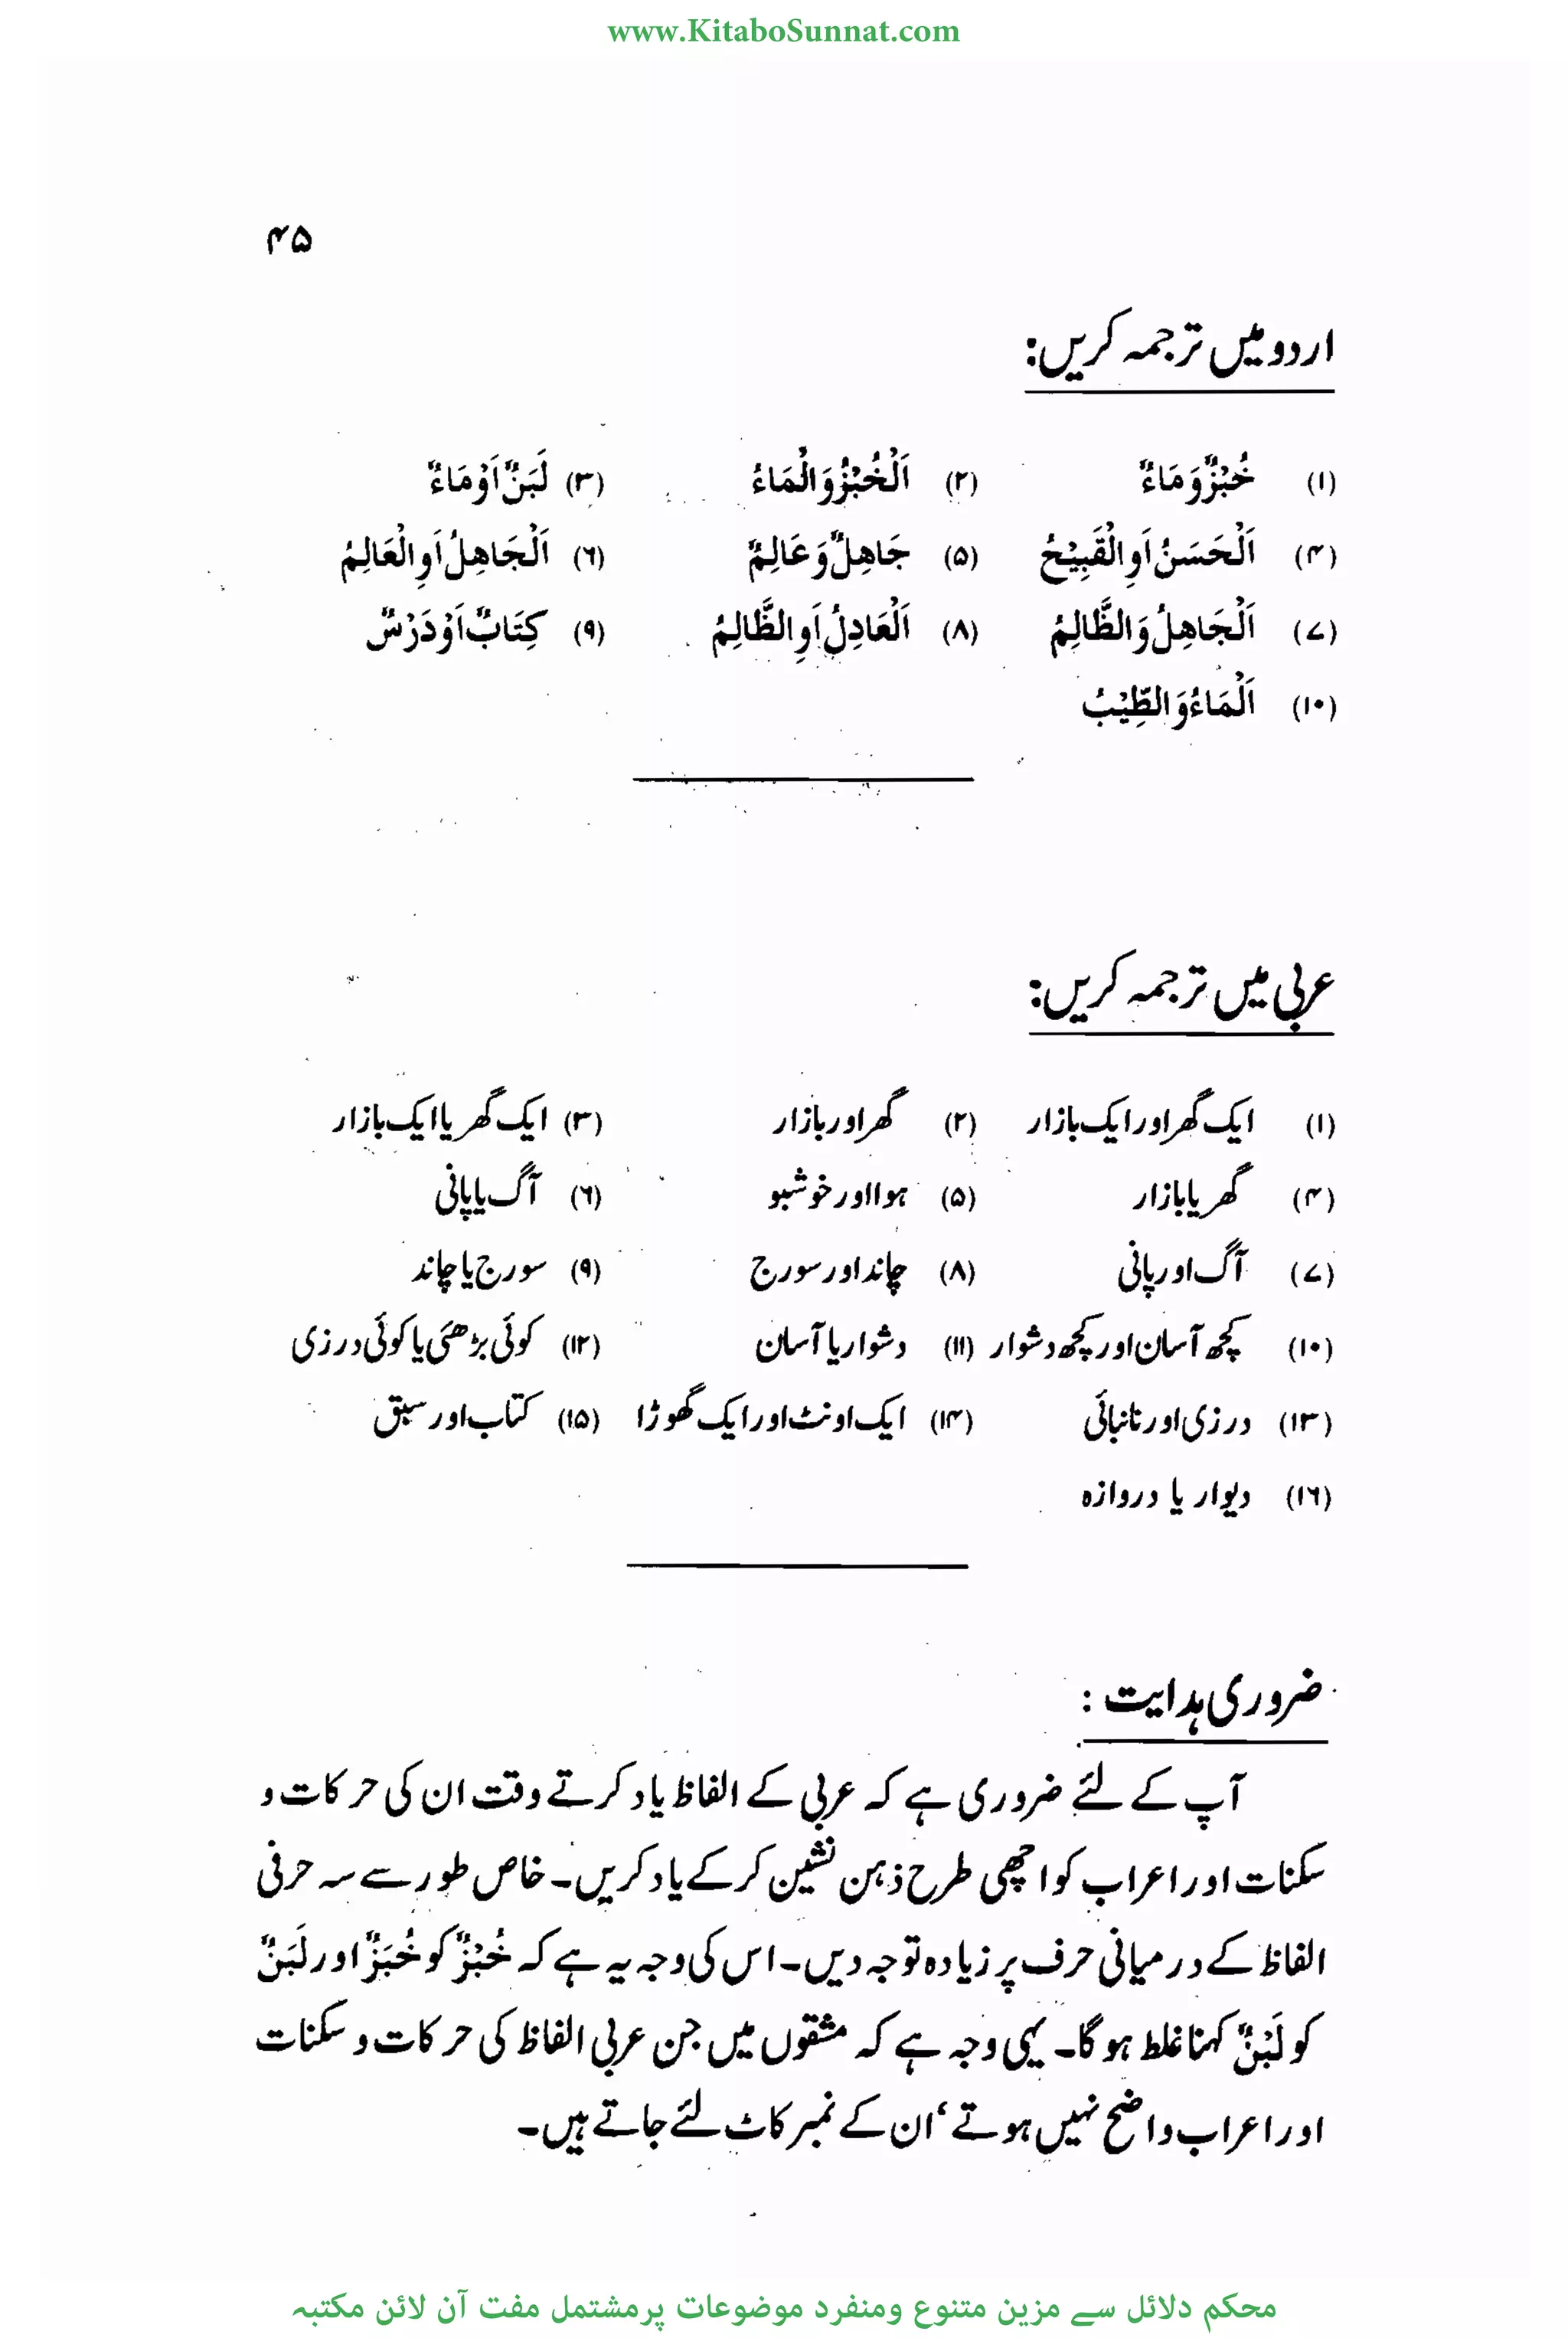 www.KitaboSunnat.com
۴۵
اردو میں ترجمہ کریں:
(۱) خُبْزٌ وَمَاءٌ (۲) اَلْخُبْزُ وَالْمَاءُ (۳) لَبَنٌ اَوْ مَاءٌ
(۴) اَلْحَسَنُ اَوِ الْقَبِيْحُ (۵) جَاهِلٌ وَعَالِمٌ (۶) اَلْجَاهِلُ اَوِ الْعَالِمُ
(۷) اَلْجَاهِلُ وَالظَّالِمُ (۸) اَلْعَادِلُ اَوِ الظَّالِمُ (۹) كِتَابٌ اَوْ دَرْسٌ
(۱۰) اَلْمَاءُ وَالطِّيْبُ
عربی میں ترجمہ کریں:
(۱) ایک گھر اور ایک بازار (۲) گھر اور بازار (۳) ایک گھر یا ایک بازار
(۴) گھر یا بازار (۵) ہوا اور خوشبو (۶) آگ یا پانی
(۷) آگ اور پانی (۸) چاند اور سورج (۹) سورج یا چاند
(۱۰) کچھ آسان اور کچھ دشوار (۱۱) دشوار یا آسان (۱۲) کوئی بڑھئی یا کوئی درزی
(۱۳) درزی اور نانبائی (۱۴) ایک اونٹ اور ایک گھوڑا (۱۵) کتاب اور سبق
(۱۶) دیوار یا دروازہ
ضروری ہدایت :
آپ کے لئے ضروری ہے کہ عربی کے الفاظ یاد کرتے وقت ان کی حرکات و
سکنات اور اعراب کو اچھی طرح ذہن نشین کر کے یاد کریں۔ خاص طور سے سہ حرفی
الفاظ کے درمیانی حرف پر زیادہ توجہ دیں۔ اس کی وجہ یہ ہے کہ خُبْزٌ کو خُبَزٌ اور لَبَنٌ
کو لَبْنٌ کہنا غلط ہو گا۔ یہی وجہ ہے کہ مشقوں میں جن عربی الفاظ کی حرکات و سکنات
اور اعراب واضح نہیں ہوتے‘ ان کے نمبر کاٹ لئے جاتے ہیں۔
محکم دلائل سے مزین متنوع ومنفرد موضوعات پر مشتمل مفت آن لائن مکتبہ